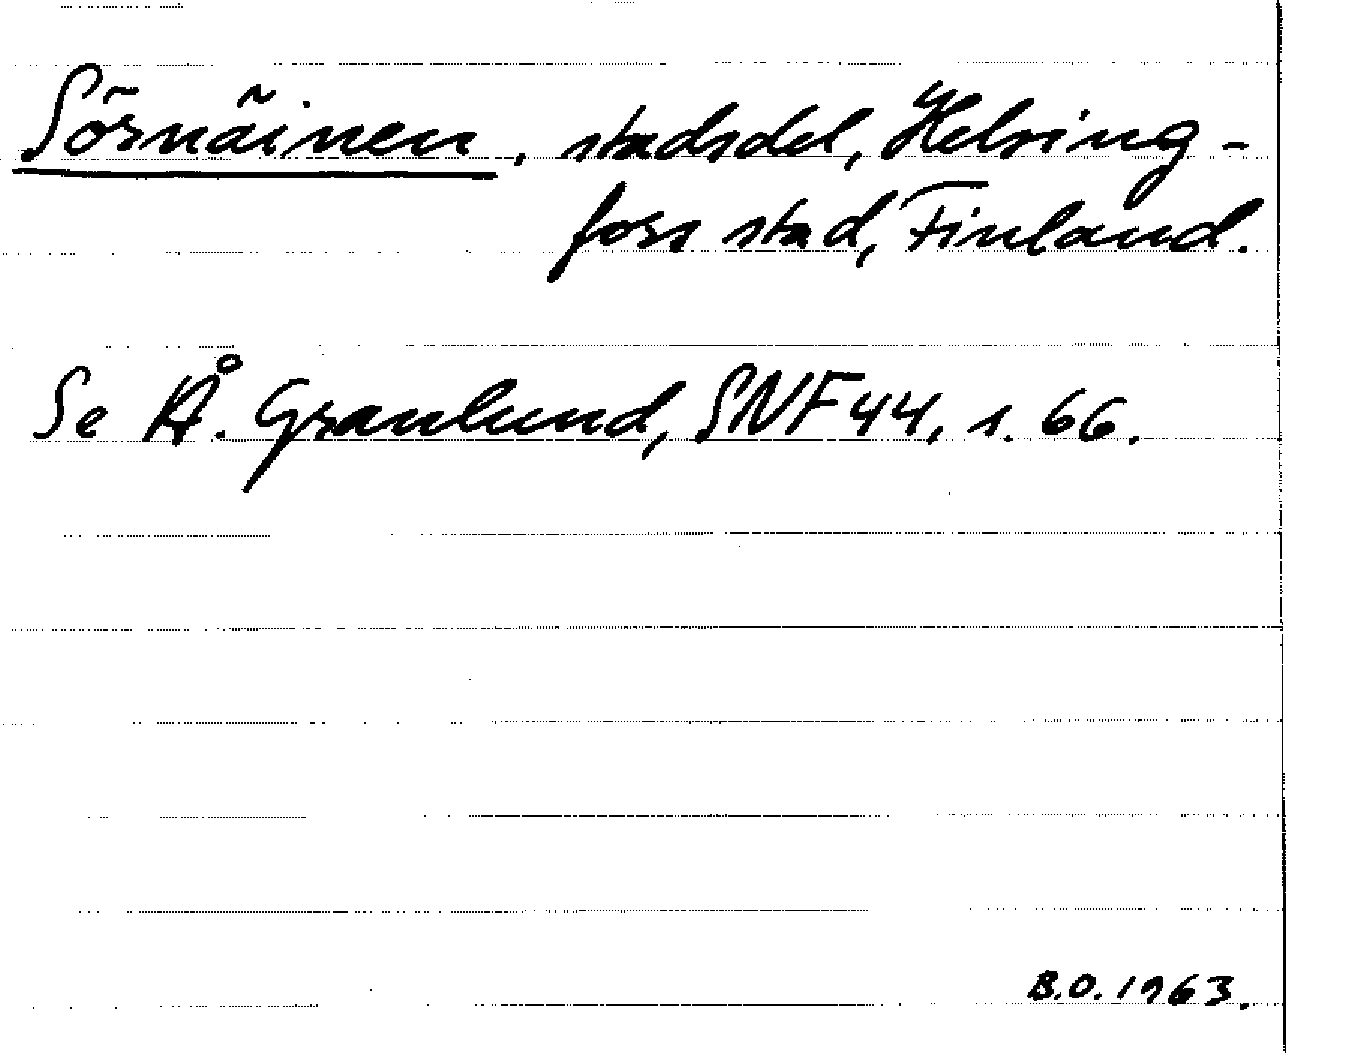 Sörnäinen, stadsdel, Helsing-
fors stad, Finland.
Se Å. Granlund, SNF 44, s. 66.
B.O. 1963.